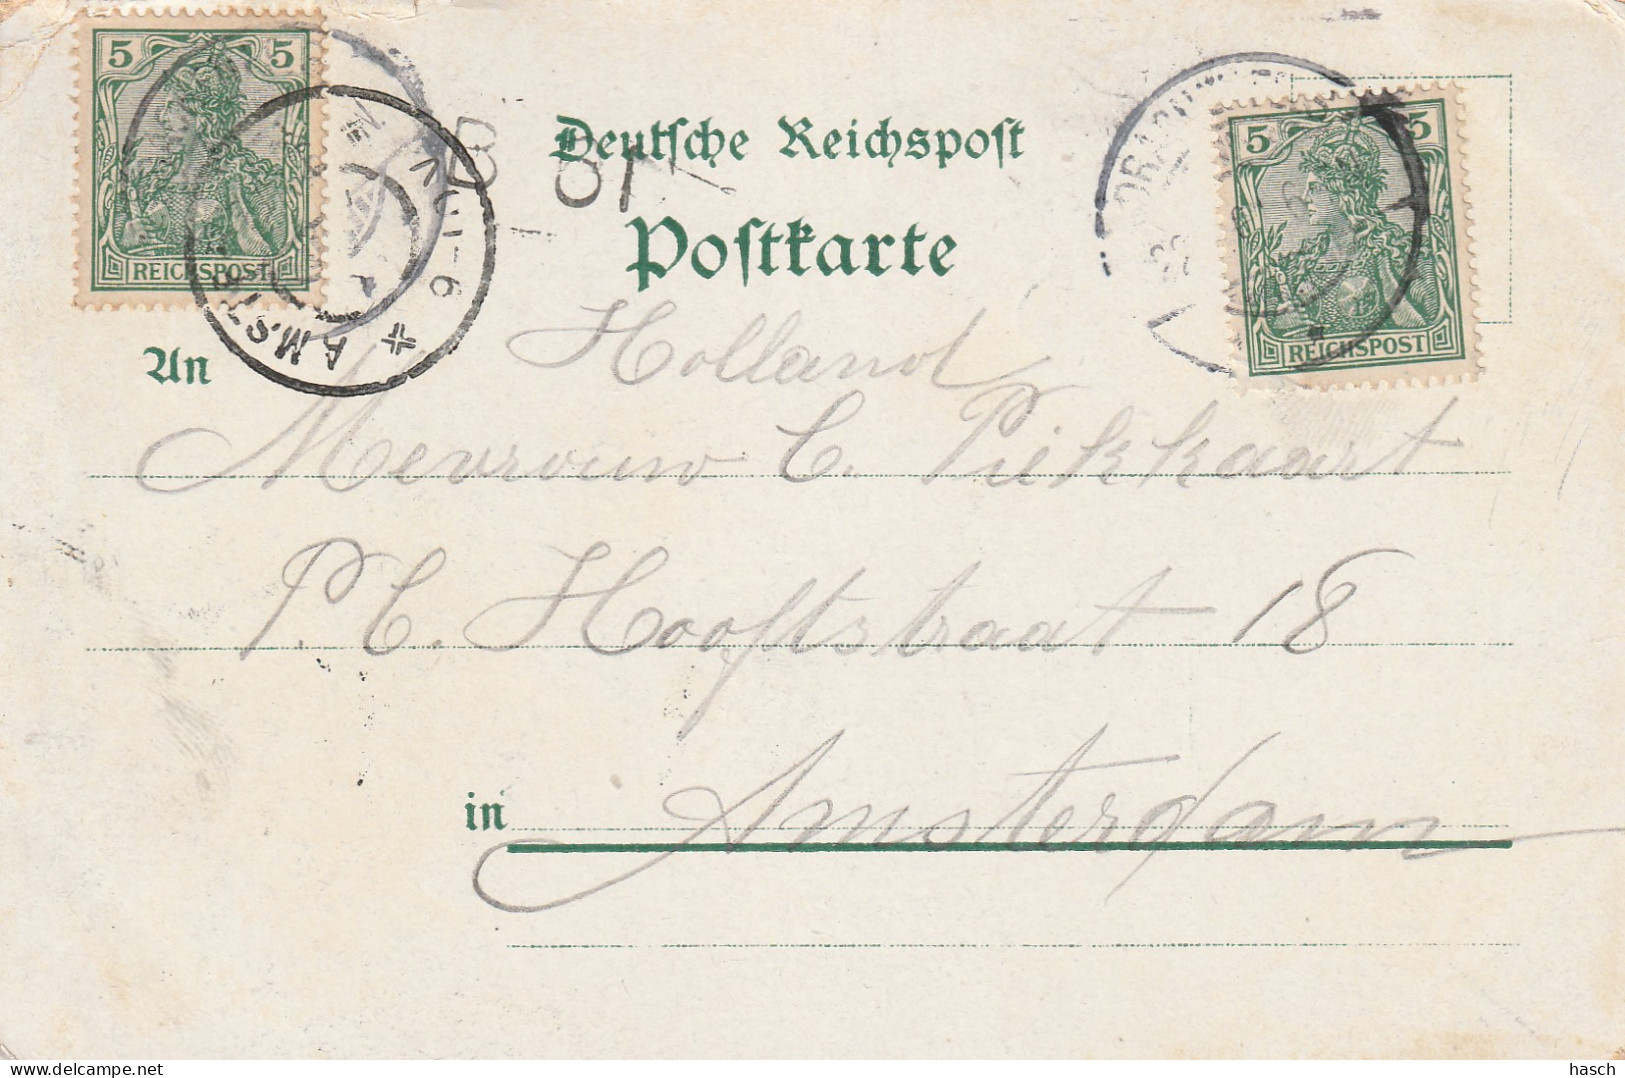 5 5
REICHSPOST
Deutsche Reichspost
Postkarte
5 5
REICHSPOST
An
Holland
Mevrouw C. Piekkaart
P.C. Hooftstraat 18
in Amsterdam
hasch